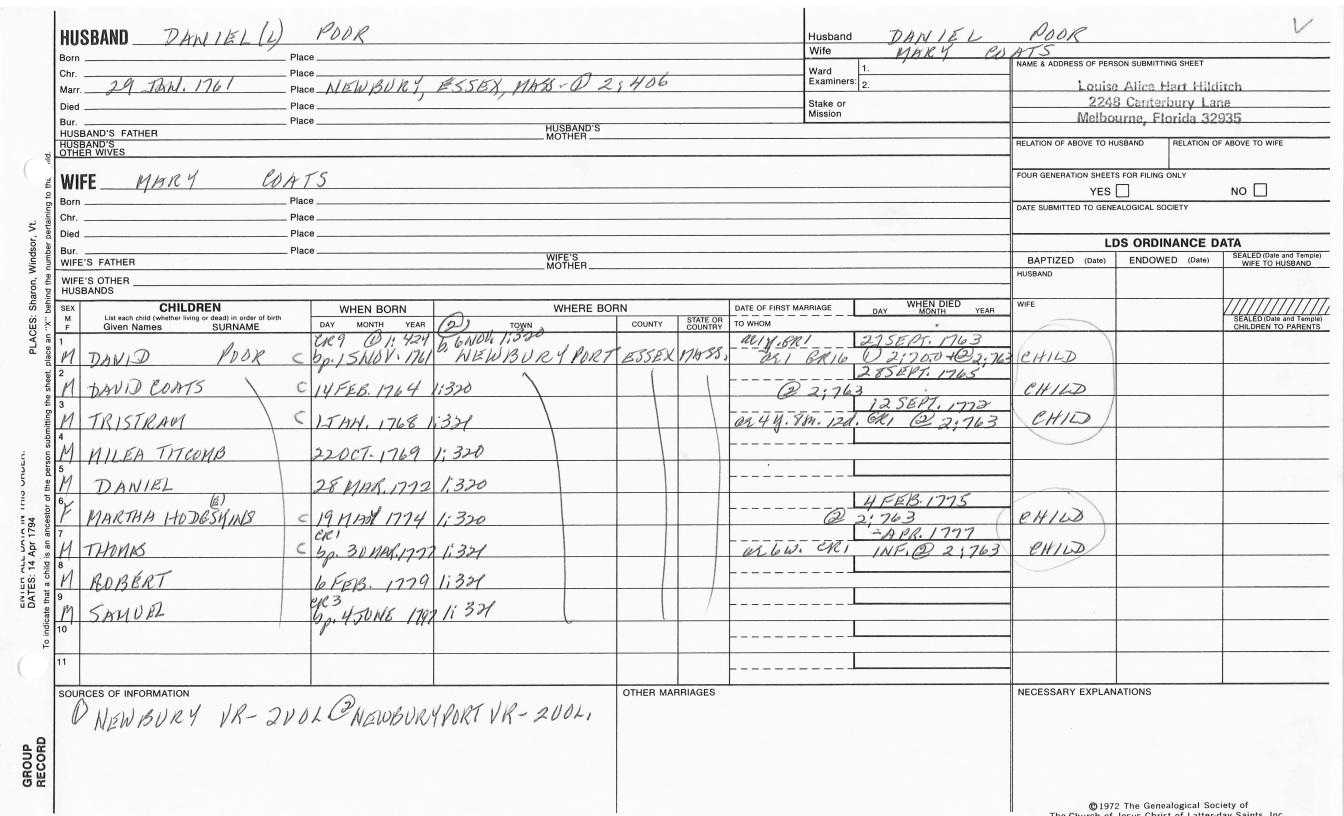 HUSBAND DANIEL(L) POOR
Husband DANIEL POOR
Wife MARY COATS
Born Place
Chr. Place
Marr. 29 JAN. 1761 Place NEWBURY, ESSEX, MASS - ① 2;406
Died Place
Bur. Place
HUSBAND'S FATHER HUSBAND'S MOTHER
HUSBAND'S OTHER WIVES
Ward Examiners: 1.
2.
Stake or Mission
NAME & ADDRESS OF PERSON SUBMITTING SHEET
Louise Alice Hart Hilditch
2248 Canterbury Lane
Melbourne, Florida 32935
RELATION OF ABOVE TO HUSBAND RELATION OF ABOVE TO WIFE
FOUR GENERATION SHEETS FOR FILING ONLY
YES NO
DATE SUBMITTED TO GENEALOGICAL SOCIETY
WIFE MARY COATS
Born Place
Chr. Place
Died Place
Bur. Place
WIFE'S FATHER WIFE'S MOTHER
WIFE'S OTHER HUSBANDS
LDS ORDINANCE DATA
BAPTIZED (Date) ENDOWED (Date) SEALED (Date and Temple) WIFE TO HUSBAND
HUSBAND
WIFE
SEALED (Date and Temple) CHILDREN TO PARENTS
SEX M F
CHILDREN
List each child (whether living or dead) in order of birth
Given Names SURNAME
WHEN BORN
DAY MONTH YEAR
WHERE BORN
TOWN COUNTY STATE OR COUNTRY
DATE OF FIRST MARRIAGE
TO WHOM
WHEN DIED
DAY MONTH YEAR
CR9 ① 1; 424 ② b. 6 NOV. 1;320 27 SEPT. 1763
1 M DAVID POOR C bp. 15 NOV. 1761 NEWBURYPORT ESSEX MASS. GR16 ① 2;700 + ② 2;763 CHILD
28 SEPT. 1765
2 M DAVID COATS C 14 FEB. 1764 1;320 ② 2;763 CHILD
12 SEPT. 1772
3 M TRISTRAM C 1 JAN. 1768 1;321 ae 4y. 8m. 12d. CR1 ② 2;763 CHILD
4 M MILEA TITCOMB 22 OCT. 1769 1;320
5 M DANIEL 28 MAR. 1772 1;320
4 FEB. 1775
6 F MARTHA HODGSKINS (E) C 19 MAY 1774 1;320 ② 2;763 CHILD
CR1 - APR. 1777
7 M THOMAS C bp. 30 MAR. 1777 1;321 ae 6w. CR1 INF. ② 2;763 CHILD
8 M ROBERT 6 FEB. 1779 1;321
CR3
9 M SAMUEL bp. 4 JUNE 1;321
10
11
SOURCES OF INFORMATION
① NEWBURY VR - 2 VOL ② NEWBURYPORT VR - 2 VOL.
OTHER MARRIAGES
NECESSARY EXPLANATIONS
©1972 The Genealogical Society of
The Church of Jesus Christ of Latter-day Saints, Inc.
PLACES: Sharon, Windsor, Vt.
ENTER ALL DATA IN THIS ORDER:
DATES: 14 Apr 1794
To indicate that a child is an ancestor of the person submitting the sheet, place an "X" behind the number pertaining to that child.
GROUP
RECORD